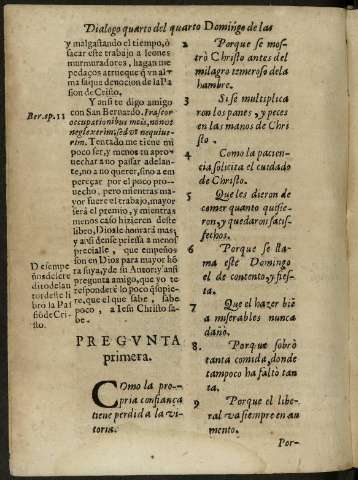 Dialogo quarto del quarto Domingo de las
y malgastando el tiempo, ò
sacar este trabajo a leones
murmuradores, hagan me
pedaços a trueque q̃ vn al
ma saque deuocion de la Pa
sion de Cristo.
Y ansi te digo amigo
con San Bernardo. Præ for
occupationibus meis, non ot
neglexerim, sed ut nequiue-
rim. Tentado me tiene mi
poco ser, y menos tu apro-
uechar a no passar adelan-
te, no a no querer, sino a em
pereçar por el poco proue-
cho, pero mientras ma-
yor fuere el trabajo, mayor
serà el premio, y mientras
menos caso hizieren deste
libro, Dios le honrarà mas;
y ansi dense priessa a menos
precialle, que empeños
son en Dios para mayor hõ
ra suya, y de su Autor y ansi
pregunta amigo, que yo te
responderè lo poco q̃ supie-
re, que el que sabe, sabe
poco, a Iesu Christo sa-
be.
Ber. ap. 11
Desempe
ditodelau
tor deste li
bro la Pas
sto.
PREGVNTA
primera.
Como la pro-
pria confiança
tiene perdida la vi-
toria.
2 Porque se mos-
trò Christo antes del
milagro temeroso dela
hambre.
3 Si se multiplica
ron los panes, y peces
en las manos de Chri
sto.
4 Como la pacien-
cia solicita el cuidado
de Christo.
5 Que les dieron de
comer quanto quisie-
ron, y quedaron satis-
fechos.
6 Porque se lla
ma este Domingo
el de contento, y fies-
ta.
7 Que el hazer biē
a miserables nunca
dañò.
8. Porque sobrò
tanta comida, donde
tampoco ha faltò tan
ta.
9 Porque el libe-
ral va siempre en au
mento.
Por-